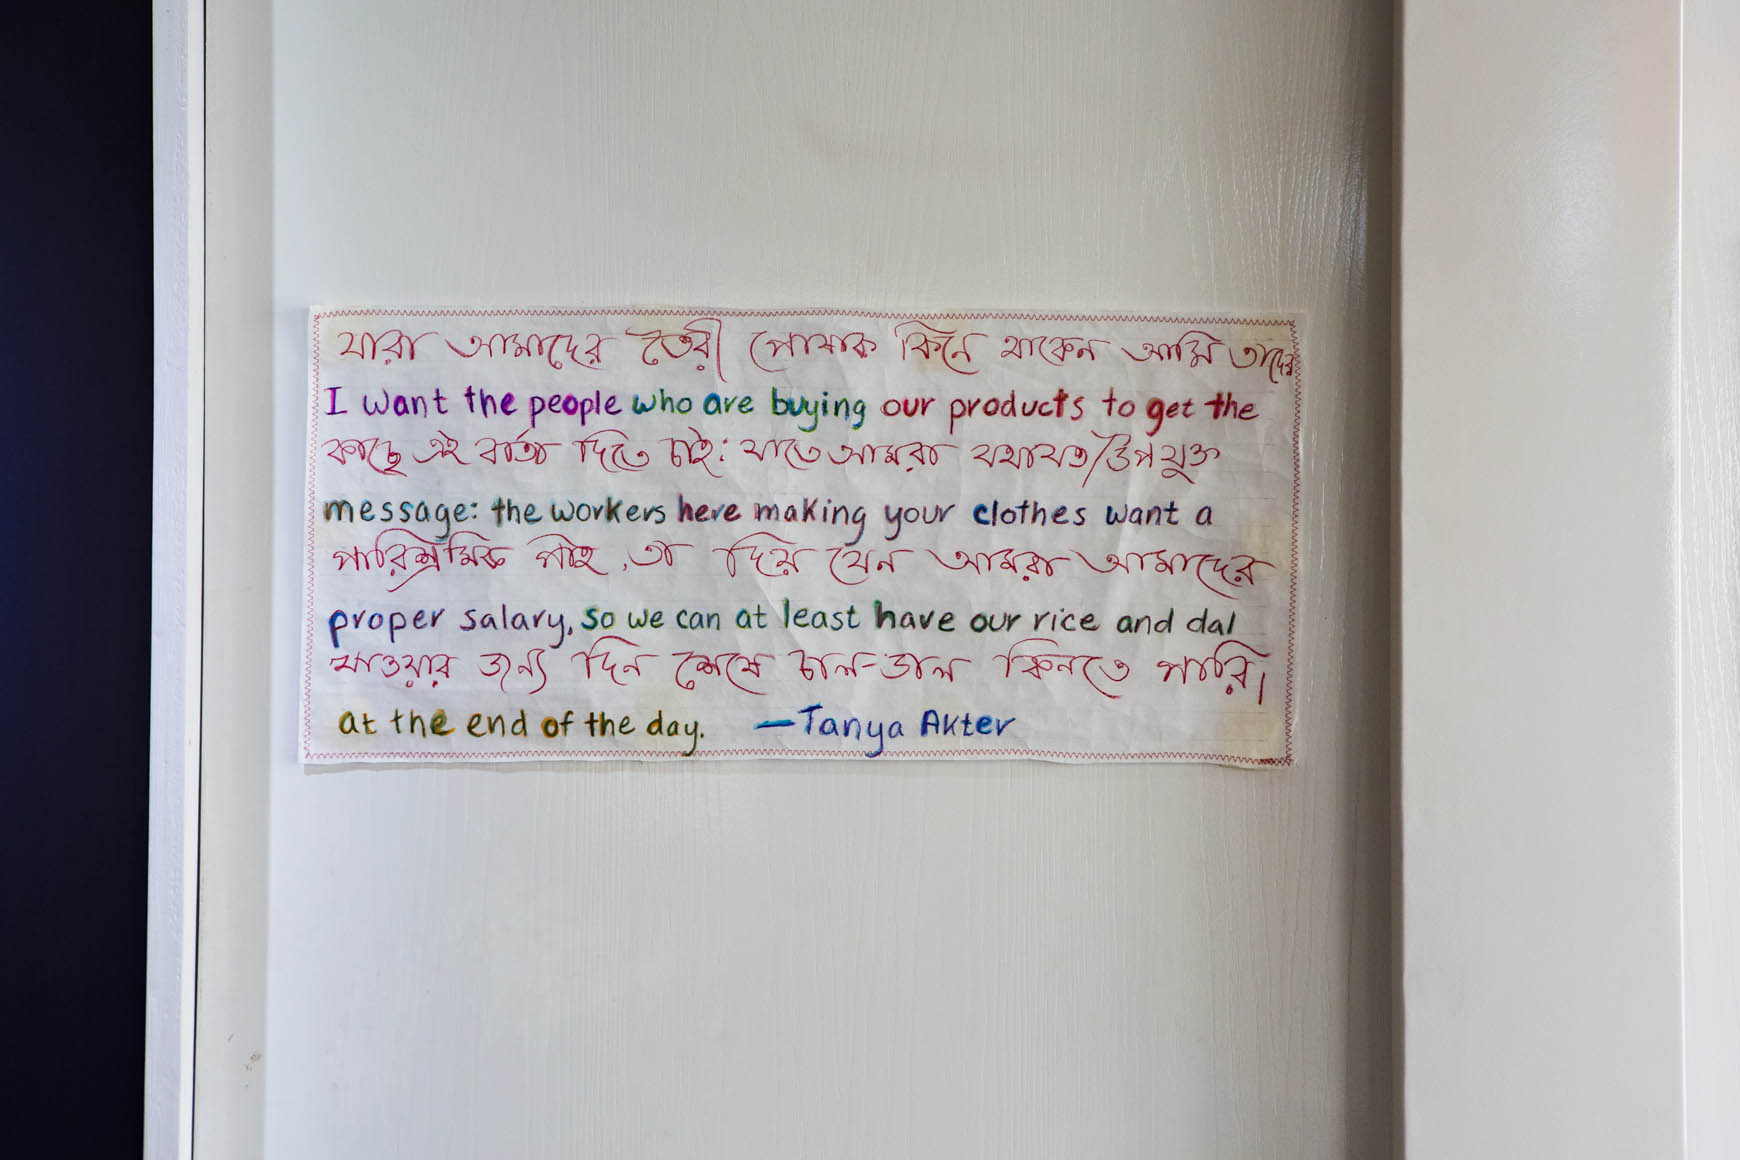 যারা আমাদের তৈরী পোষাক কিনে থাকেন আমি তাদের
I want the people who are buying our products to get the
কাছে এই বার্তা দিতে চাই: যাতে আমরা যথাযত/উপযুক্ত
message: the workers here making your clothes want a
পারিশ্রমিক পাই, তা দিয়ে যেন আমরা আমাদের
proper salary, so we can at least have our rice and dal
খাওয়ার জন্য দিন শেষে চাল-ডাল কিনতে পারি।
at the end of the day. —Tanya Akter